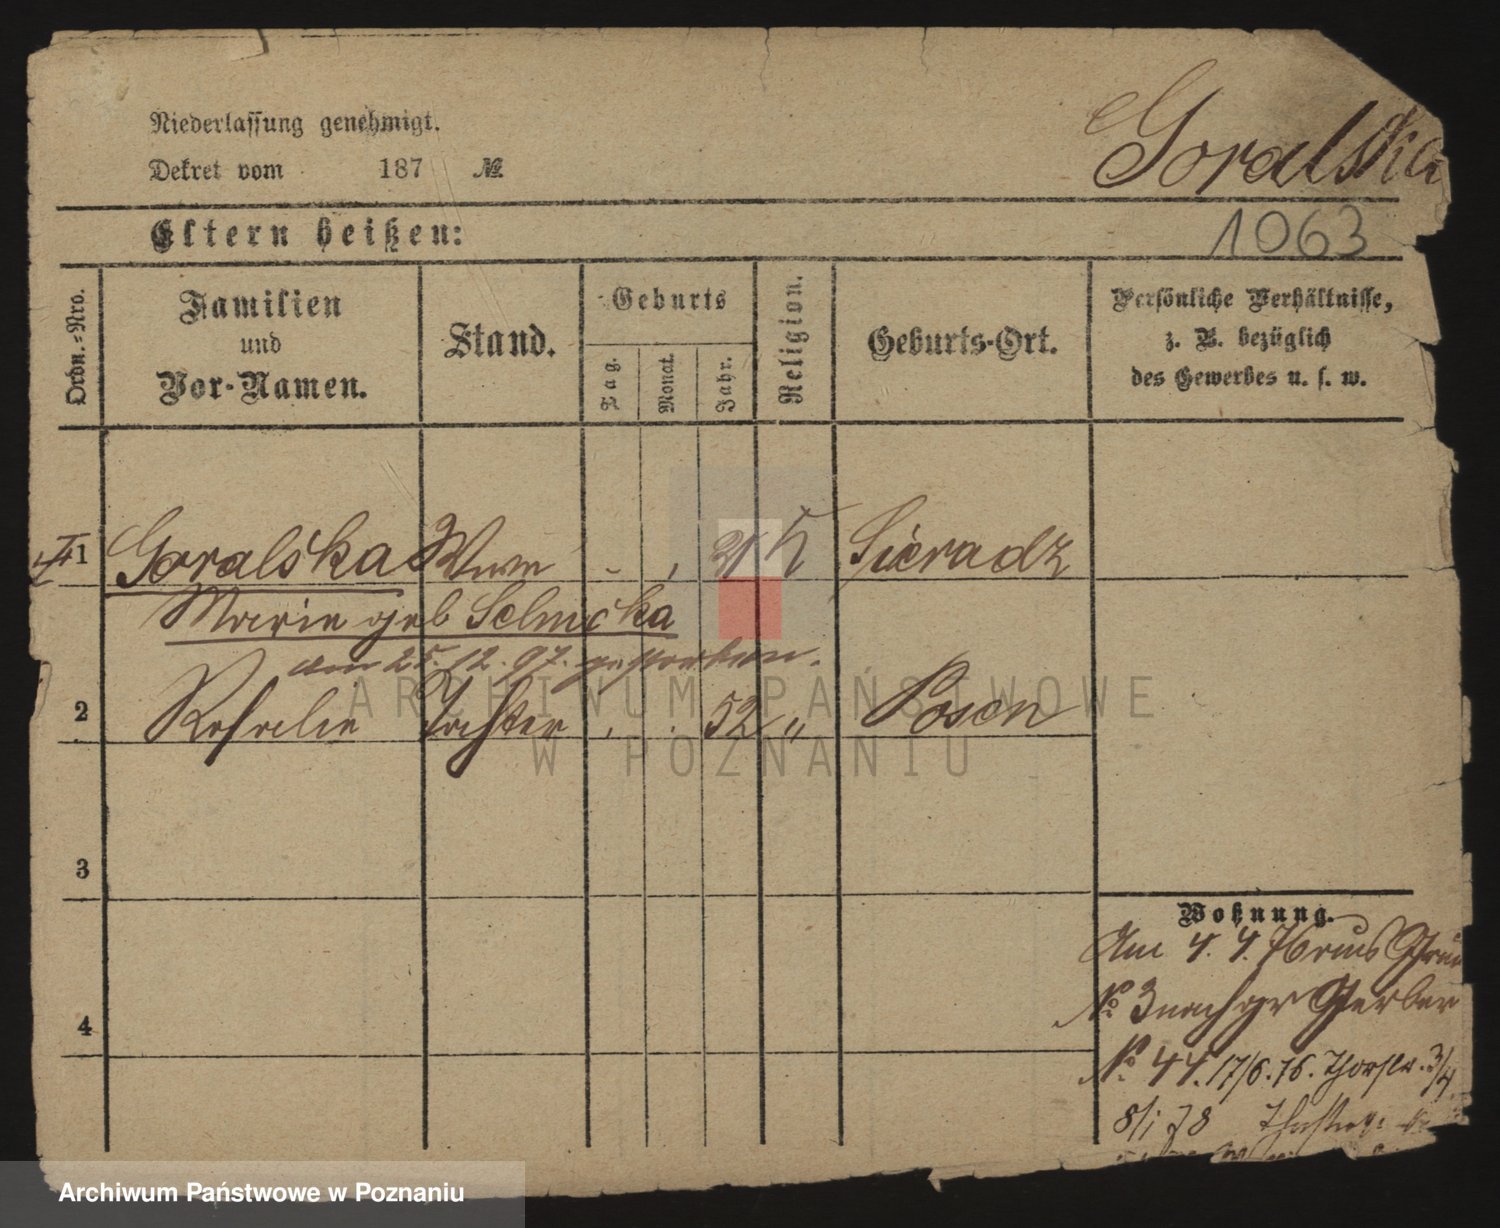 Niederlassung genehmigt.
Dekret vom 187 №
Goralska
Eltern heißen:
1063
Ordn.-Nro.
Familien
und
Vor-Namen.
Stand.
Geburts
Tag.
Monat.
Jahr.
Religion.
Geburts-Ort.
Persönliche Verhältnisse,
z. B. bezüglich
des Gewerbes u. s. w.
1 Goralska Wwe 21 k Sieradz
Marie geb
am 25.12.97. gestorben.
2 Rosalie Tochter 52 " Posen
3
4
Wohnung.
Am 4. 4.
№ 3 nach gr Gerber
№ 44. 17/6. 76. Thorstr. 3/4
8/1 78
ARCHIWUM PAŃSTWOWE
W POZNANIU
Archiwum Państwowe w Poznaniu